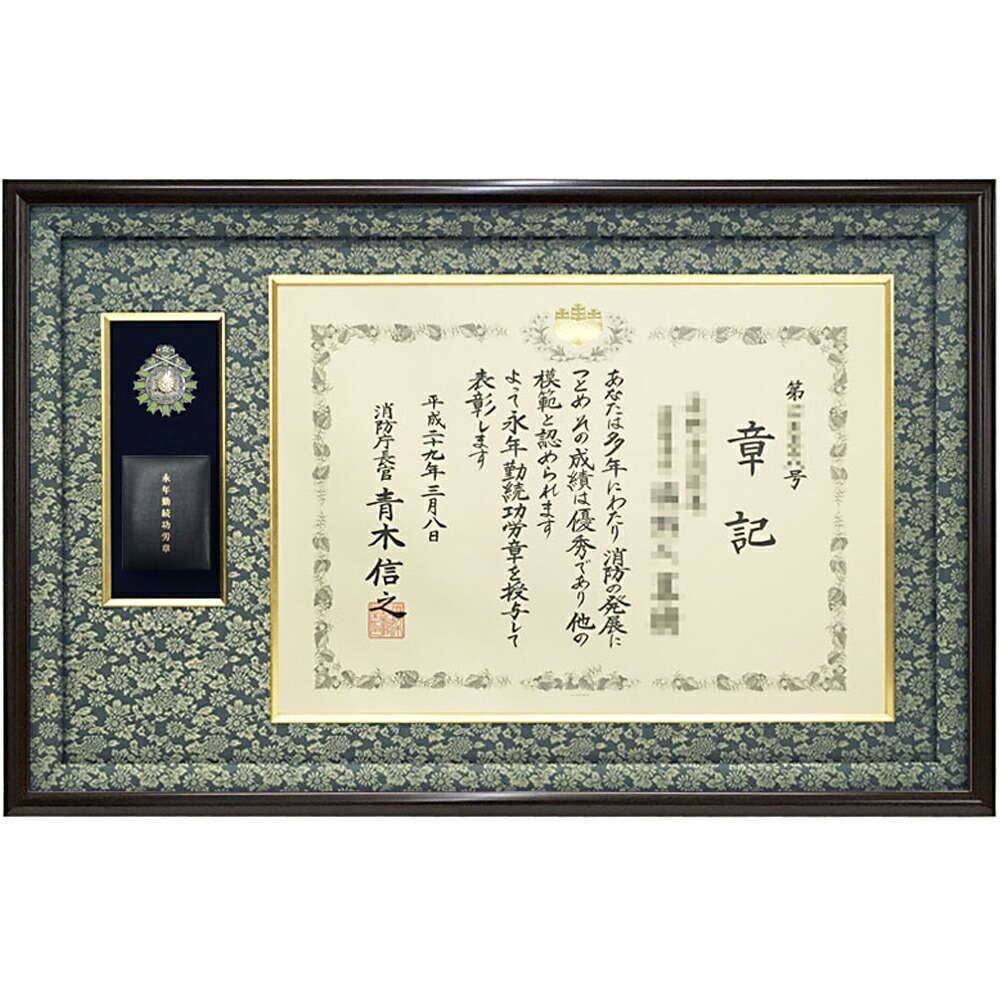 第
号
章記
あなたは多年にわたり消防の発展に
つとめその成績は優秀であり他の
模範と認められます
よって永年勤続功労章を授与して
表彰します
平成二十九年三月八日
消防庁長官 青木信之
永年勤続功労章